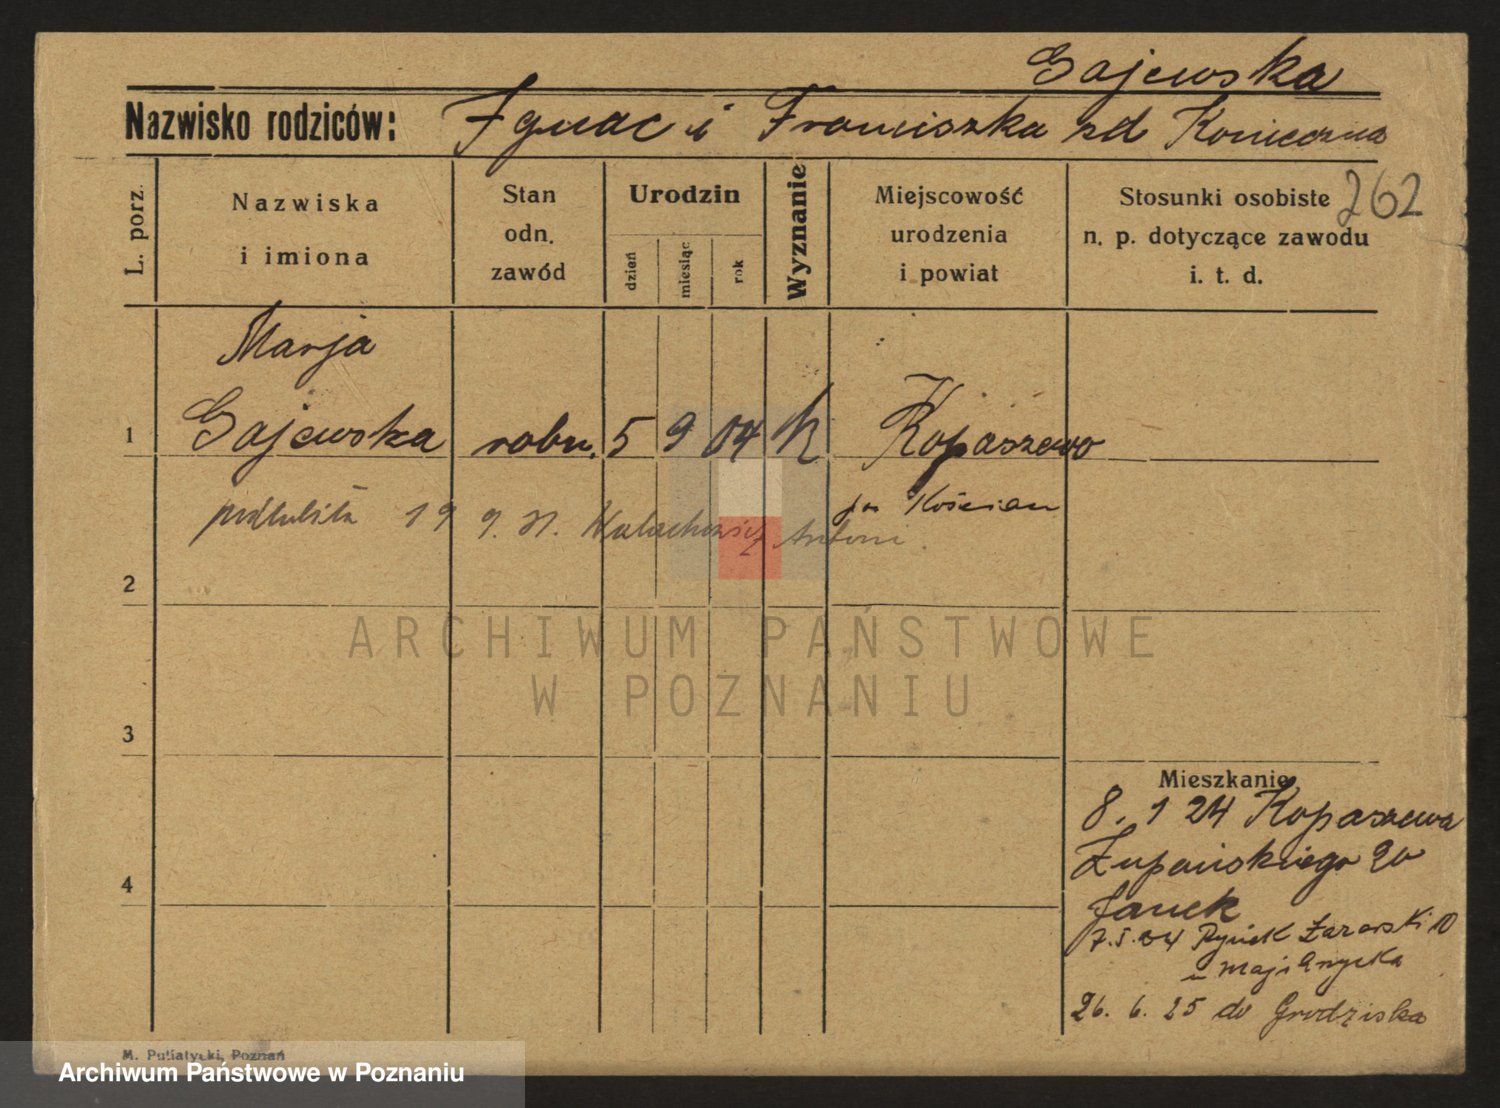 Gajewska
Nazwisko rodziców: Ignac i Franciszka zd Konieczna
L. porz.
Nazwiska
i imiona
Stan
odn.
zawód
Urodzin
dzień
miesiąc
rok
Wyznanie
Miejscowość
urodzenia
i powiat
Stosunki osobiste
n. p. dotyczące zawodu
i. t. d.
262
Marja
1 Gajewska robn. 5 9 04 K Kopaszewo
po Kościan
19 9. 31. Antoni
2
3
4
Mieszkanie
8. 1 24 Kopaszewa
Żupańskiego 20
Janek
7.5.24 Rynek Łazarski 10
u
26. 6. 25 do Grodziska
M. Putiatycki, Poznań
ARCHIWUM PAŃSTWOWE
W POZNANIU
Archiwum Państwowe w Poznaniu